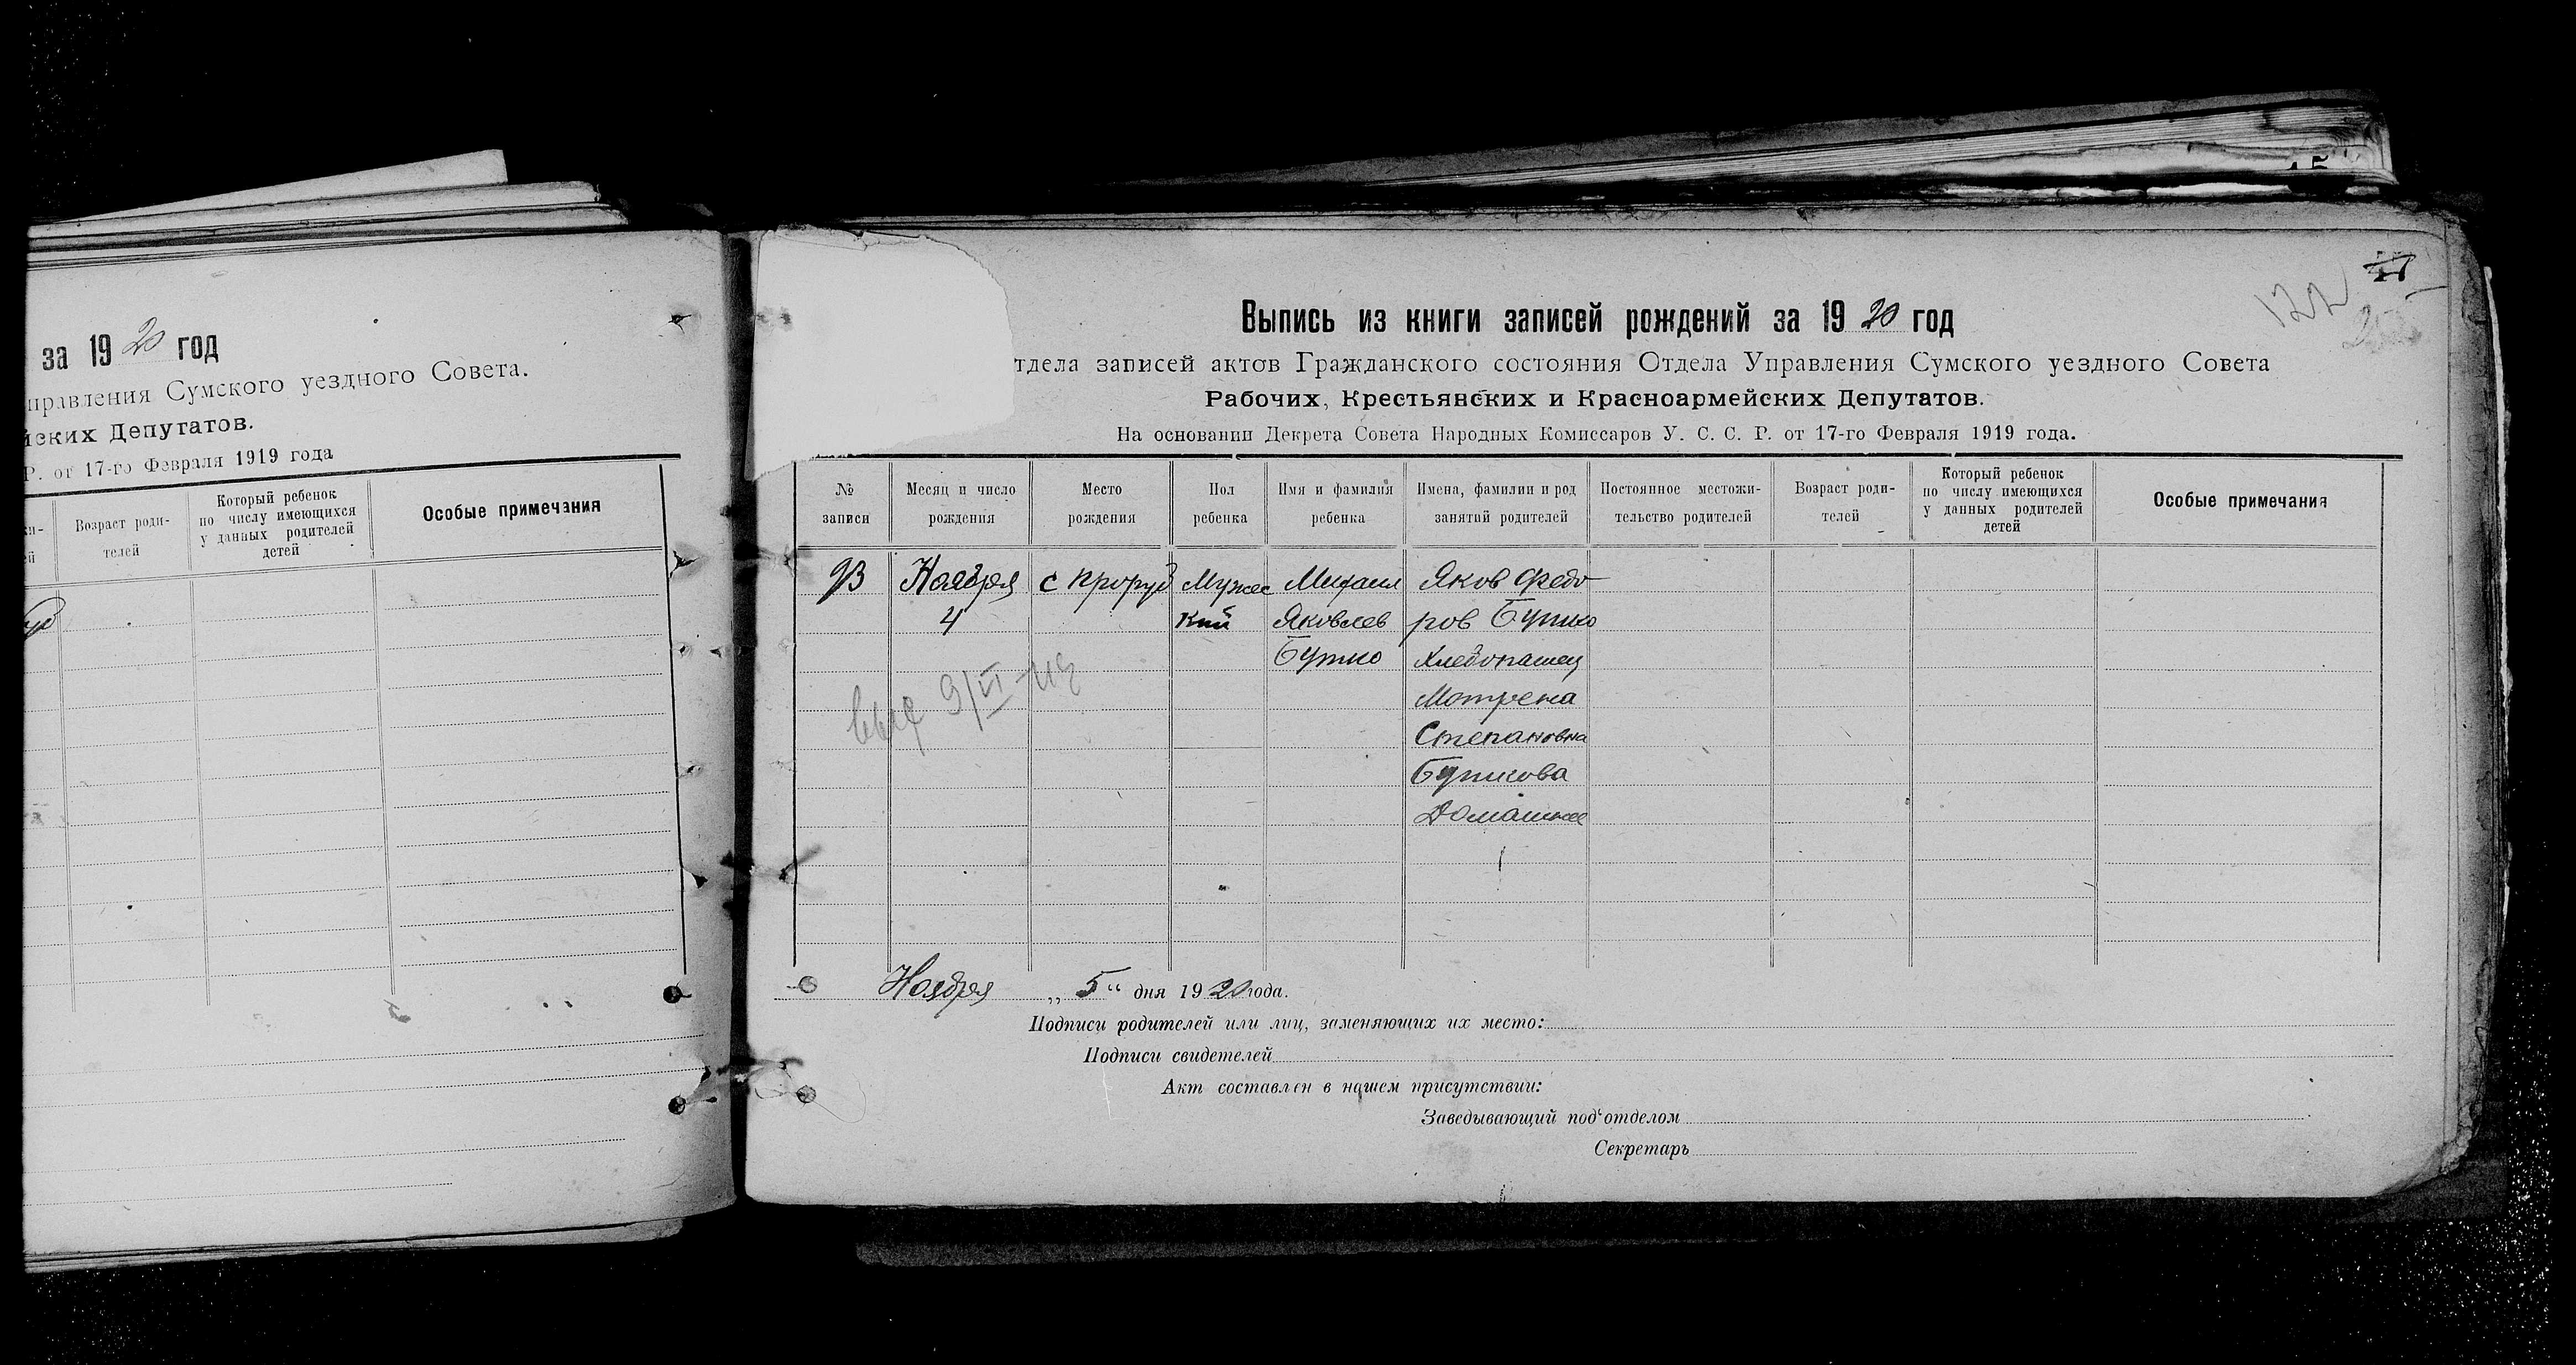 за 1920 год
правления Сумского уездного Совета.
йских Депутатов.
Р. от 17-го Февраля 1919 года
Возраст роди-
телей
Который ребенок
по числу имеющихся
у данных родителей
детей
Особые примечания
Выпись из книги записей рождений за 1920 год
тдела записей актов Гражданского состояния Отдела Управления Сумского уездного Совета
Рабочих, Крестьянских и Красноармейских Депутатов.
На основании Декрета Совета Народных Комиссаров У. С. С. Р. от 17-го Февраля 1919 года.
№
записи
Месяц и число
рождения
Место
рождения
Пол
ребенка
Имя и фамилия
ребенка
Имена, фамилии и род
занятий родителей
Постоянное местожи-
тельство родителей
Возраст роди-
телей
Который ребенок
по числу имеющихся
у данных родителей
детей
Особые примечания
93
Ноября
4
с Проруб
Мужес
кий
Михаил
Яковлев
Бутко
Яков Федо
ров Бутко
Хлебопашец
Матрена
Степановна
Буткова
Домашнее
Ноября „ 5 “ дня 1920 года.
Подписи родителей или лиц, заменяющих их место:
Подписи свидетелей
Акт составлен в нашем присутствии:
Заведывающий под‘отделом
Секретарь